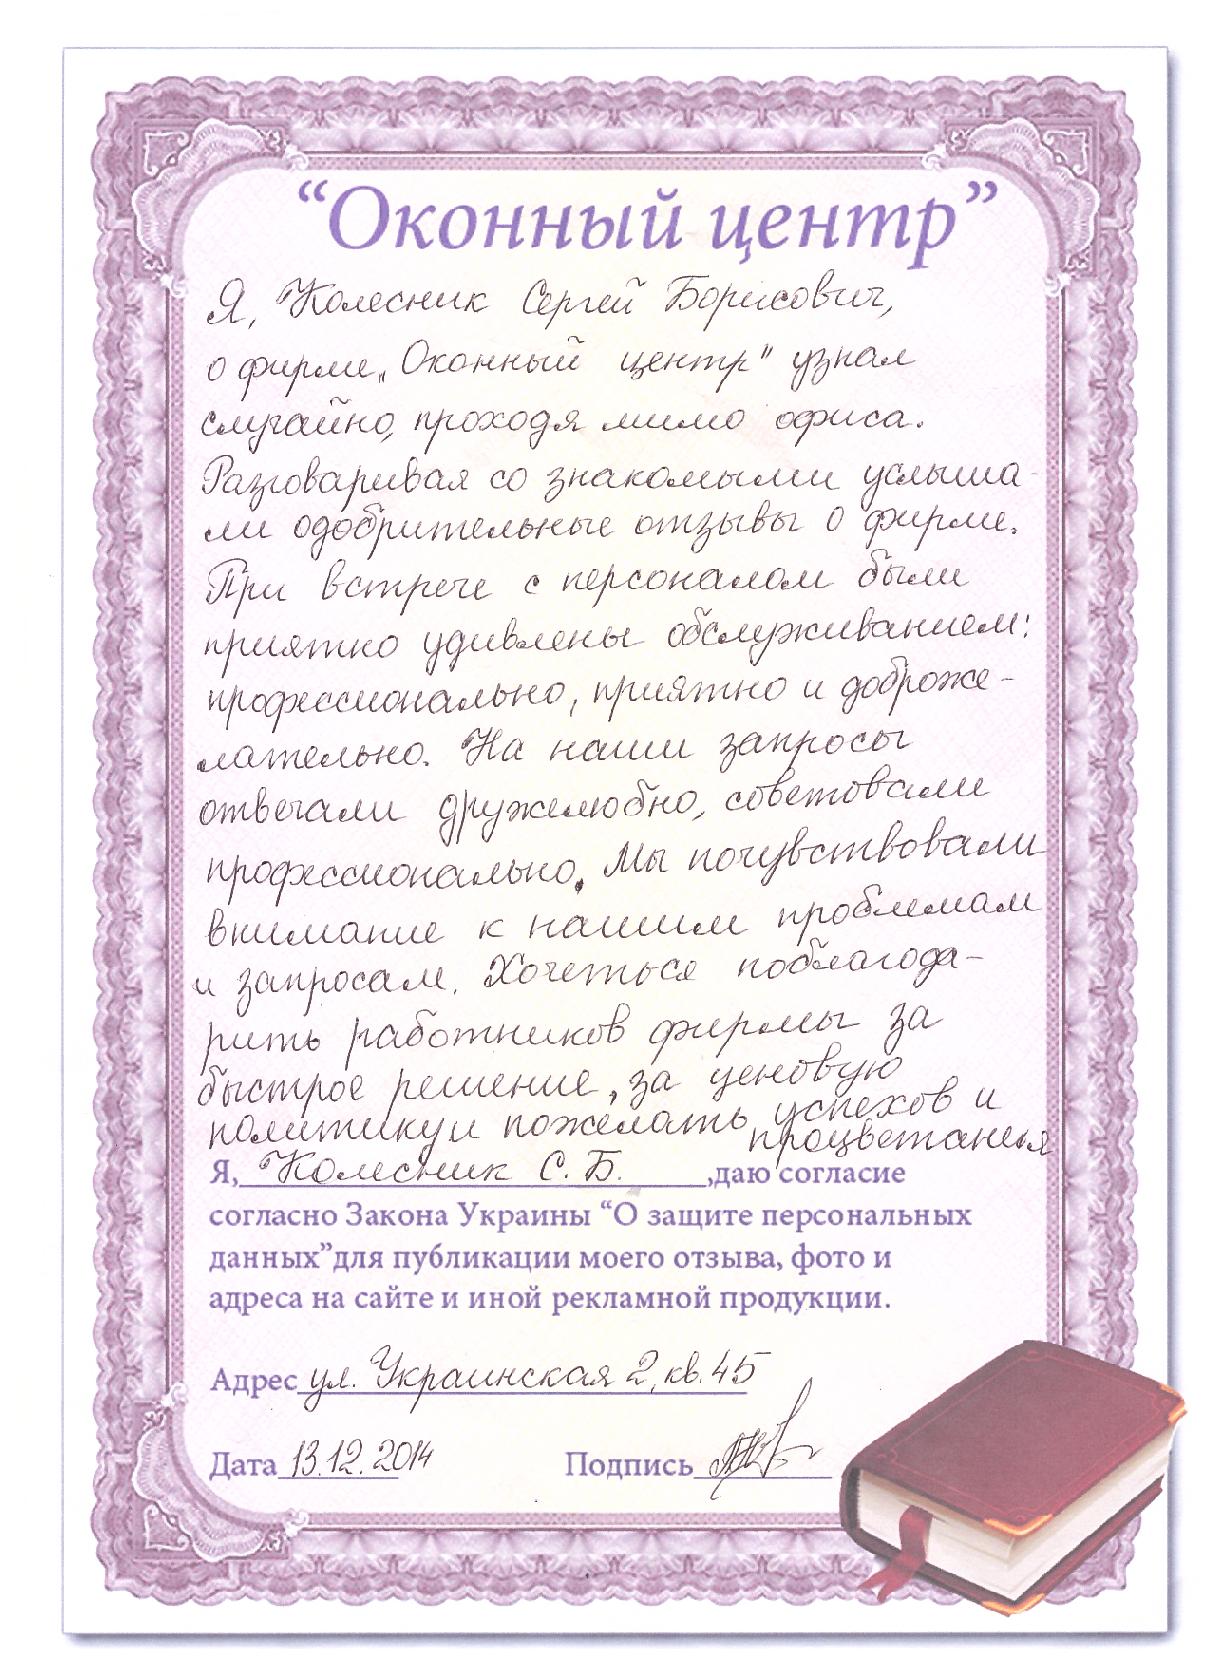 “Оконный центр”
Я, Колесник Сергей Борисович,
о фирме „Оконный центр" узнал
случайно, проходя мимо офиса.
Разговаривая со знакомыми услыша-
ли одобрительные отзывы о фирме.
При встрече с персоналом были
приятно удивлены обслуживанием:
профессионально, приятно и доброже-
лательно. На наши запросы
отвечали дружелюбно, советовали
профессионально. Мы почувствовали
внимание к нашим проблемам
и запросам. Хочеться поблагода-
рить работников фирмы за
быстрое решение, за ценовую
политику и пожелать успехов и
процветания
Я, Колесник С. Б. ,даю согласие
согласно Закона Украины “О защите персональных
данных”для публикации моего отзыва, фото и
адреса на сайте и иной рекламной продукции.
Адрес ул. Украинская 2, кв. 45
Дата 13.12.2014 Подпись